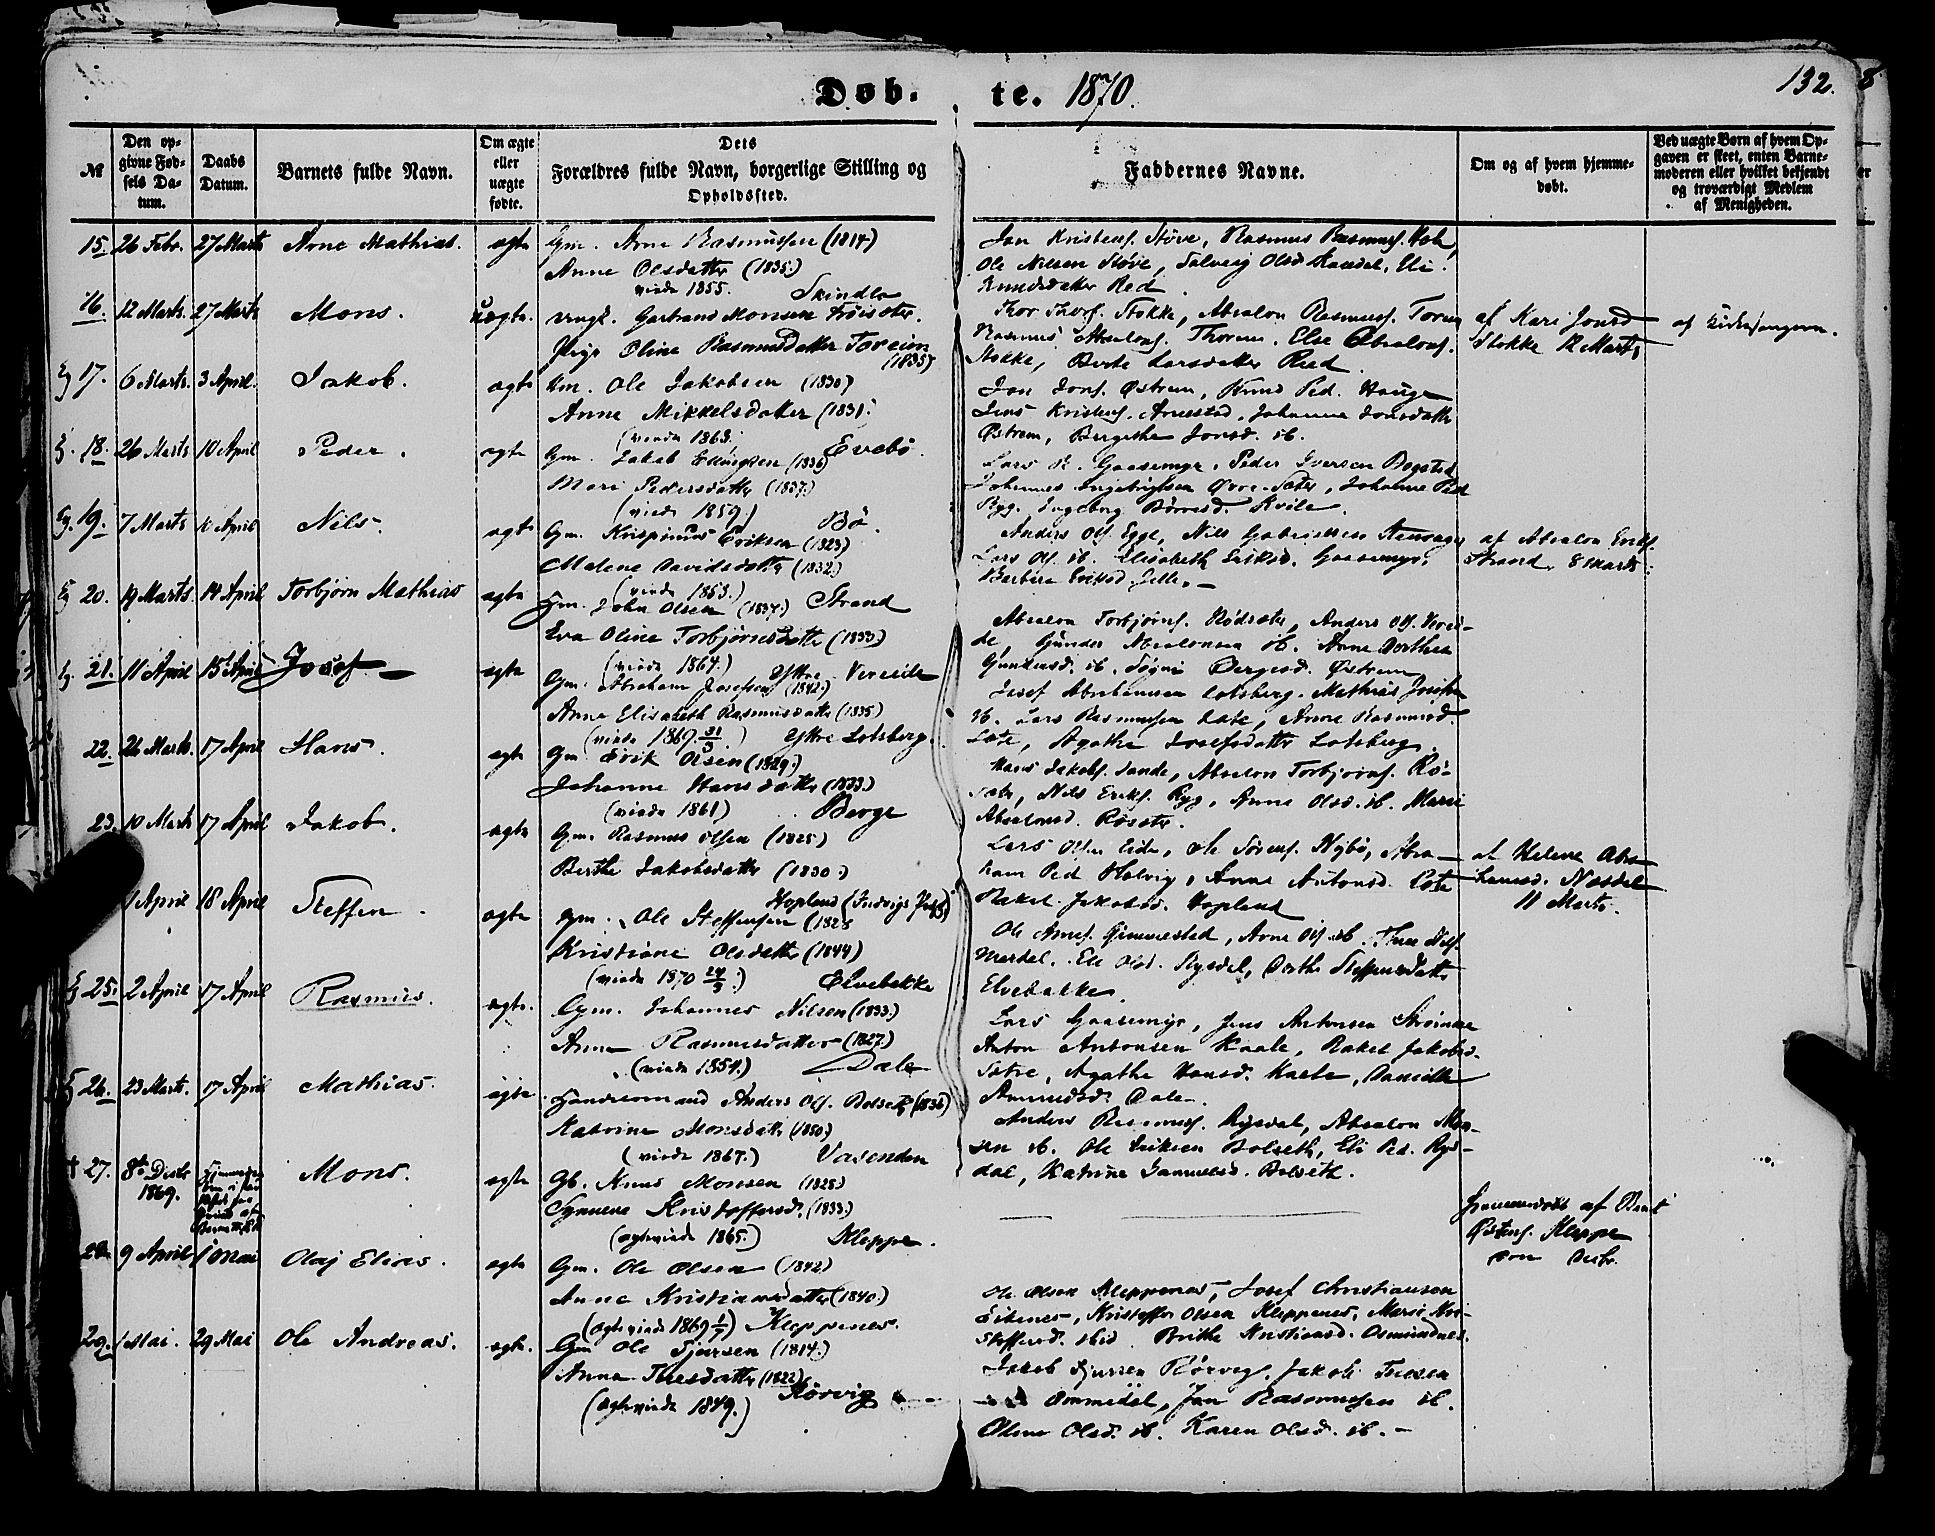 Døb- te. 1870.
132.
№
Den op-
givne Fød-
sels Da-
tum.
Daabs
Datum.
Barnets fulde Navn.
Om ægte
eller
uægte
fødte.
Dets
Forældres fulde Navn, borgerlige Stilling og
Opholdssted.
Faddernes Navne.
Om og af hvem hjemme-
døbt.
Ved uægte Børn af hvem Op-
gaven er skeet, enten Barne-
moderen eller hvilket bekjendt
og troværdigt Medlem
af Menigheden.
15 26 Febr. 27 Marts Arne Mathias. ægte Gm. Arne Rasmussen (1814)
Anne Olsdatter (1835.)
viede 1855.
Ole Nilsen Støve, Solveig Olsd. Eli
Knudsdatter Red
16. 12 Marts. 27 Marts Mons. uægte. ungk. Monsen
Pige Oline Rasmusdatter Toreim
(1835)
Thor Stokke, Absalon Rasmuss. Toreim
Rasmus Absalons. Else Absalons.
Stokke, Berte Larsdatter Red.
af Kari Jonsd
Stokke 12 Marts
17. 6 Marts. 3 April. Jakob. ægte Gm. Ole Jakobsen (1830)
Anne Mikkelsdatter (1831.)
(viede 1863.)
Evebø.
Jon Jons. Østrem, Knud Ped. Hauge
Jens Kristens. Arnestad, Johanne Jonsdatter
Østrem, Bergithe Jonsd. ib.
18. 26 Marts 10 April Peder. ægte Gm. Jakob Ellingsen (1836)
Mari Pedersdatter (1837.)
(viede 1859.) Bø.
Lars R. Gaasemyr, Peder Iversen Bogstad
Johannes Ingebrigtsen Øvre Sæter, Johanne Ped
Ryg. Ingeborg Kvile.
19. 7 Marts April Nils. ægte Gm. Krispinus Eriksen (1823)
Malene Davidsdatter (1832.)
(viede 1853.) Strand
Anders Ols. Egge, Nils Gabrielsen
Lars Ols. ib. Elisabeth Eriksd. Gaasemyr.
Barbara Eriksd.
af Absalon Eriks.
Strand 8 Marts.
20. 19 Marts. 14 April Torbjørn Mathias ægte Gm. John Olsen (1834.)
Eva Oline Torbjørnsdatter (1833.)
(viede 1864.) Yttre Vereide
Absalon Torbjørns. Rødsæter, Anders Ols. Verei-
de, Gunder Absalonsen ib. Anne Dorthea
Gundersd. ib. Østrem
21. 11 April 15 April Josef ægte Gm. Abraham Josefsen (1842.)
Anne Elisabeth Rasmusdatter (1835)
(viede 1869.) Yttre Lotsberg.
Josef Abrahamsen Lotsberg. Mathias Josefsen
ib. Lars Rasmussen Lote, Anne Rasmusd.
Lote, Agathe Josefsdatter Lotsberg.
22. 26 Marts. 17 April Hans. ægte Gm. Erik Olsen (1829.)
Johanne Hansdatter (1833.)
(viede 1861) Berge
Hans Jakobs. Sande, Absalon Torbjørns. Rø-
sæter, Nils Eriks. Ryg, Anne Olsd. ib. Marie
Absalonsd. Røsæter.
23. 10 Marts 17 April Jakob. ægte Gm. Rasmus Olsen (1825)
Berthe Jakobsdatter (1830.)
Hopland
Lars Olsen Eide, Ole Sørens. Nybø, Abra-
ham Ped Holvig, Anne Antonsd. Lote
Rakel Jakobsd. Hopland
af Helene Abra-
hamsd.
11 Marts.
April 18 April Steffen. ægte Gm. Ole Steffensen (1828
Kristiane Olsdatter (1844)
(viede 1870) Elvebakke
Ole Arnes. Gimmestad, Arne Ols ib.
Eli Olsd. Rysdal, Dorthe Steffensdatter
Elvebakke.
25. 2 April 17 April Rasmus. ægte. Gm. Johannes Nilsen (1833.)
Anne Rasmusdatter (1827.)
(viede 1854.) Dale
Lars Gaasemyr, Jens Antonsen
Anton Antonsen Kaale, Rakel Jakobsd.
Agathe Hansd. Danielle
Amundsd. Dale.
26. 23 Marts. 17 April Mathias. ægte Anders Ols. Bolseth (1836)
Katrine Monsdatter (1850)
(viede 1867.) Vasenden
Anders Rasmuss. Rysdal, Absalon Mon-
sen ib. Ole Eriksen Bolseth, Eli Ped. Rys-
dal, Katrine Samuelsd. Bolseth.
† 27. 8de Decbr
1869.
Mons. ægte Gb. Knud Monsen (1828)
Synneve Kristoffersd. (1833.)
(ægteviede 1865.) Kleppe.
hjemmedøbt af Bernt
Østens. Kleppe
Decbr.
28 9 April 1 Mai Olaj Elias. ægte Gm. Ole Olsen (1842)
Anne Kristiansdatter (1840.)
(ægteviede 1869) Kleppenes.
Ole Olsen Kleppenes, Josef Christiansen
Kristoffer Olsen Kleppenes, Marie Kri-
stoffersd. ibid. Brithe Kristiansd. Osmundnes.
29. 1 Mai. 29 Mai Ole Andreas. ægte. Gm Ole Sjursen (1814.)
Anne Thuesdatter (1822)
(ægteviede 1849.) Rørvig
Jakob Sjursen Rørvig, Jakob Tuesen
Ommedal, Jon Rasmussen ib.
Oline Olsd. ib. Karen Olsd. ib. —